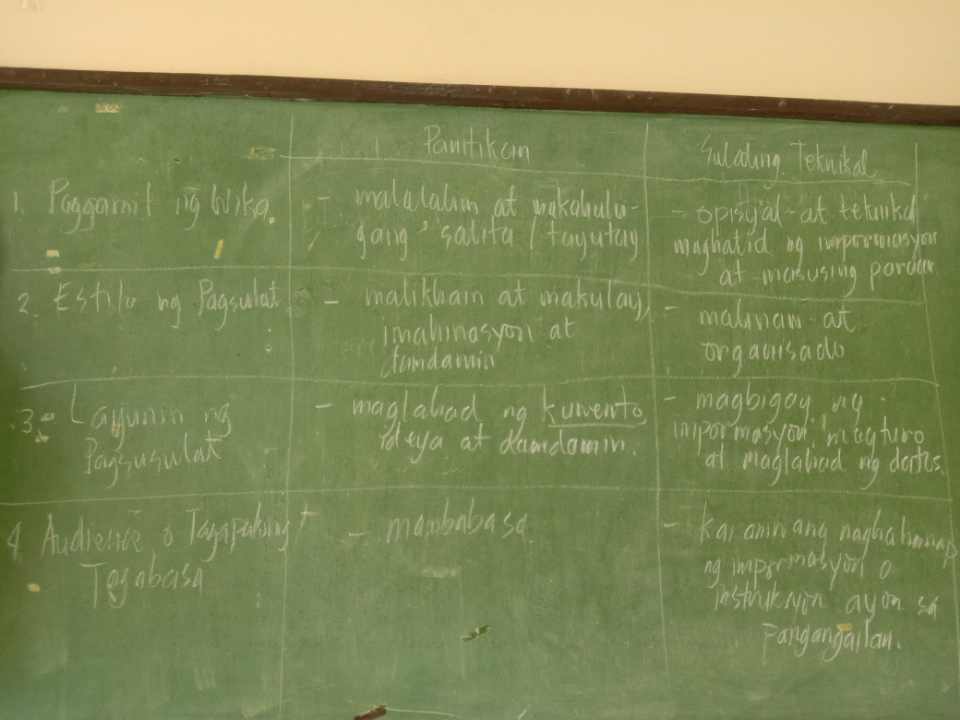 Panitikan
Sulating Teknikal
1. Paggamit ng Wika.
- malalalim at makahulu-
gang salita / tayutay
- opisyal at teknikal
maghatid ng impormasyon
at masusing
2. Estilo ng Pagsulat
- malikhain at makulay,
imahinasyon at
damdamin
- malinaw at
organisado
3. Layunin ng
Pagsusulat
- maglahad ng kuwento
ideya at damdamin.
- magbigay ng
impormasyon, magturo
at maglahad ng datos.
4. Audience o
Tagabasa
- mambabasa.
- karaniwang naghahanap
ng impormasyon o
instruksyon ayon sa
pangangailan.